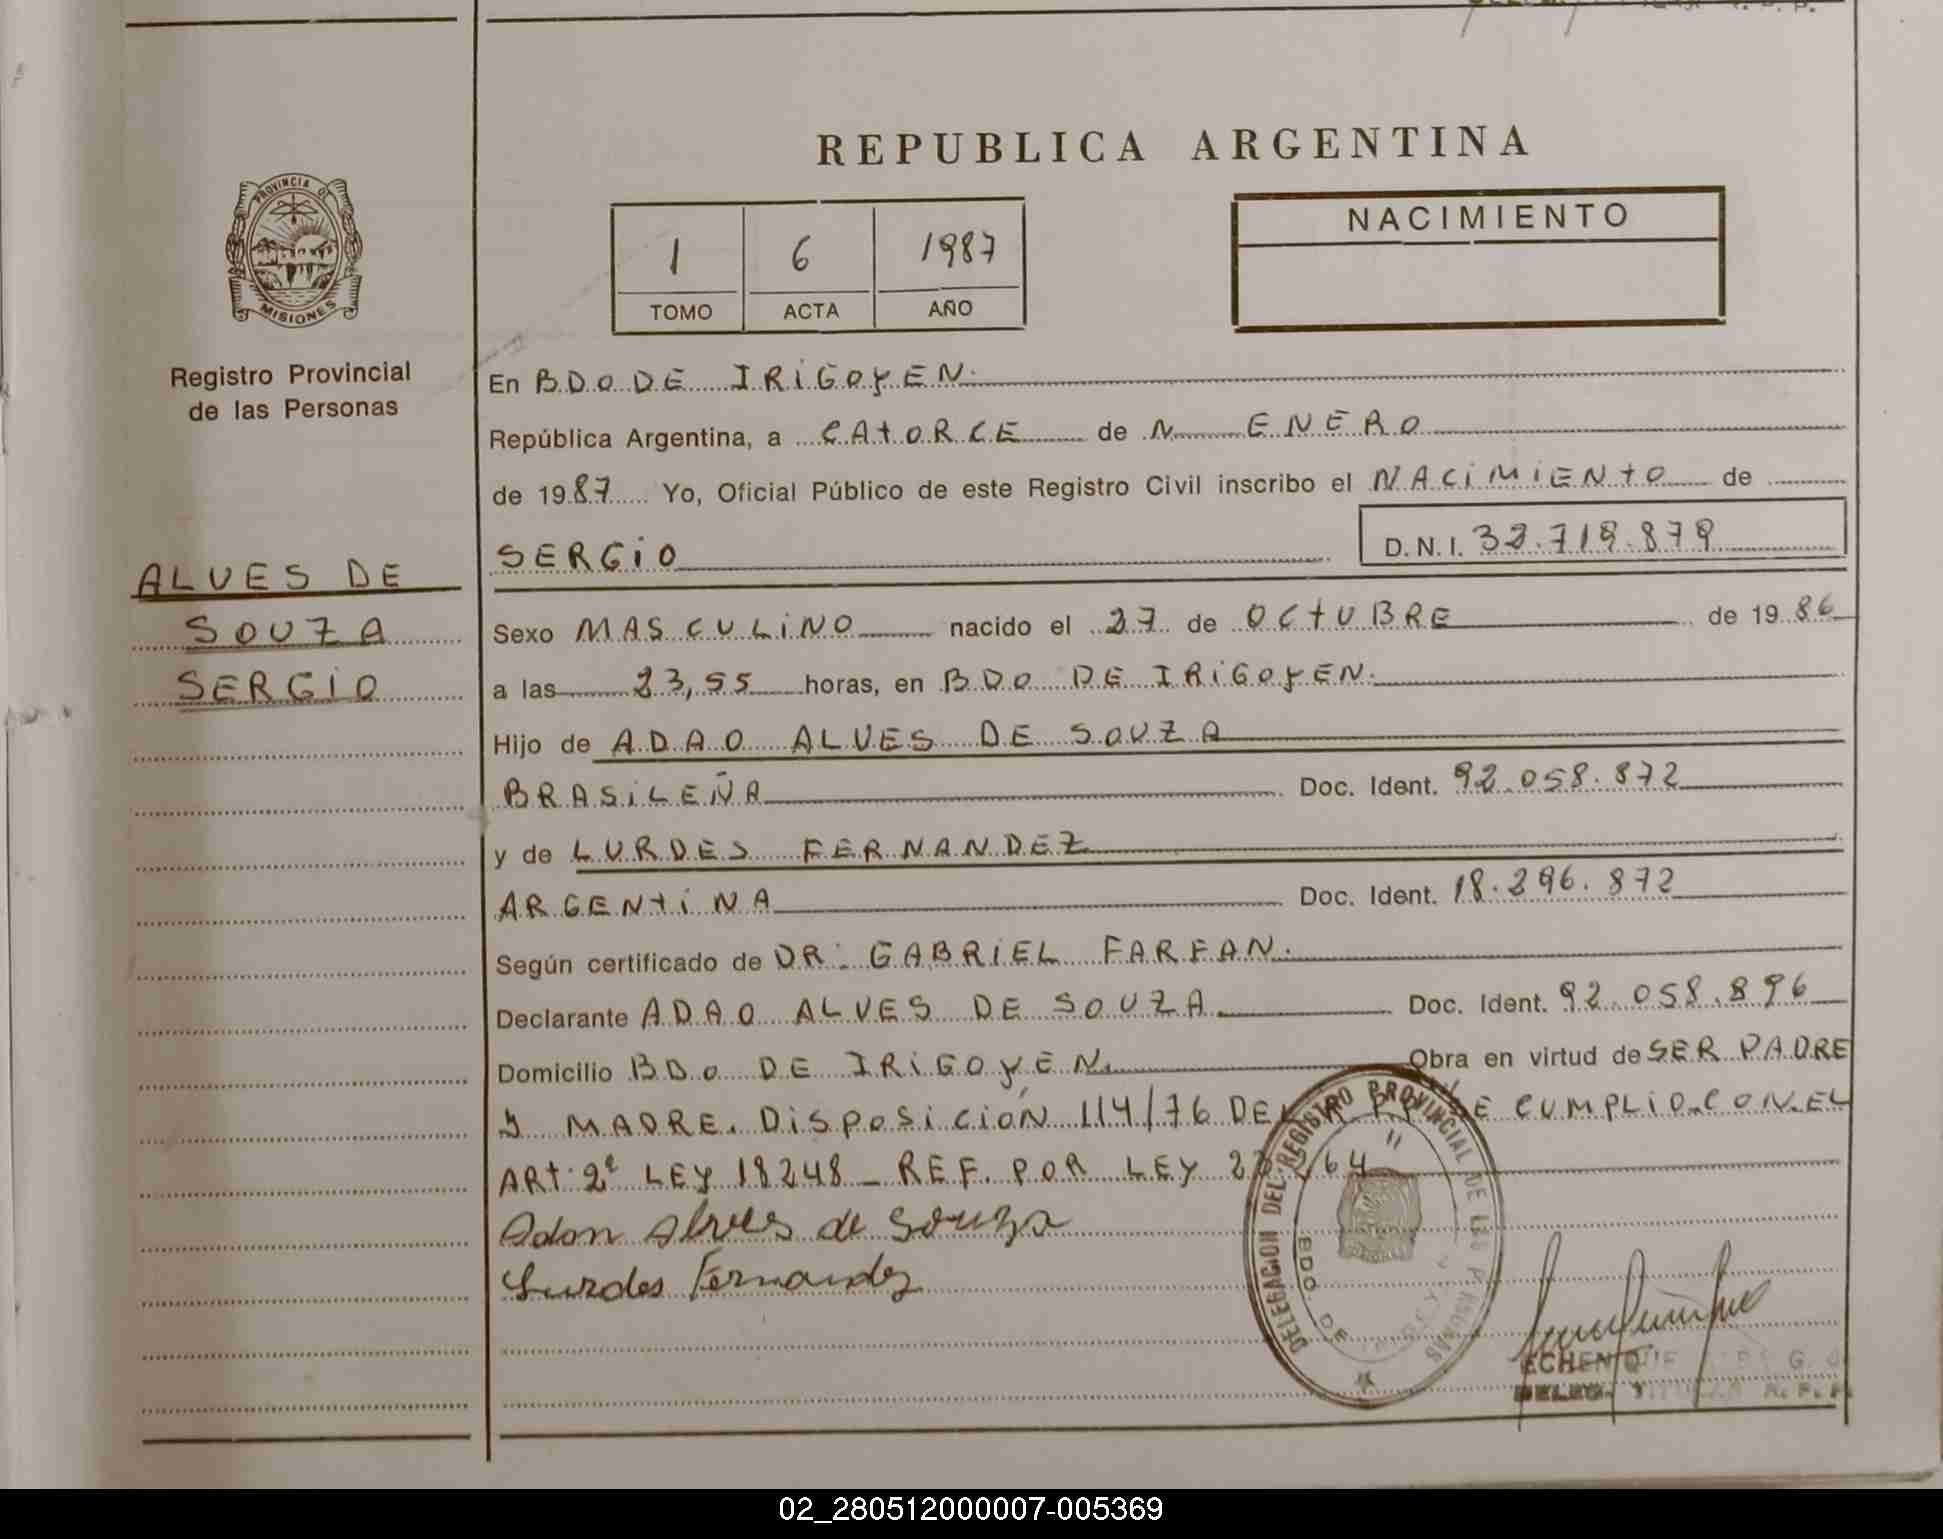 REPUBLICA ARGENTINA
PROVINCIA DE
MISIONES
Registro Provincial
de las Personas
1 6 1987
TOMO ACTA AÑO
NACIMIENTO
En BDO DE IRIGOYEN.
República Argentina, a CATORCE de N ENERO
de 1987 Yo, Oficial Público de este Registro Civil inscribo el NACIMIENTO de
SERGIO D.N.I. 32.719.879
ALVES DE
SOUZA
SERGIO
Sexo MASCULINO nacido el 27 de OCTUBRE de 1986
a las 23,55 horas, en BDO DE IRIGOYEN.
Hijo de ADAO ALVES DE SOUZA
BRASILEÑA Doc. Ident. 92.058.872
y de LURDES FERNANDEZ
ARGENTINA Doc. Ident. 18.296.872
Según certificado de DR: GABRIEL FARFAN.
Declarante ADAO ALVES DE SOUZA Doc. Ident. 92.058.896
Domicilio BDO DE IRIGOYEN. Obra en virtud de SER PADRE
Y MADRE. DISPOSICIÓN 114/76 DE SE CUMPLIO CON EL
ART. 2º LEY 18248 - REF. POR LEY
Adon Alves de Souza
Lurdes Fernandez
DELEGACION DEL REGISTRO PROVINCIAL DE LAS PERSONAS
BDO DE IRIGOYEN
ECHENIQUE
DELEG. TITULAR R. P. P.
02_280512000007-005369